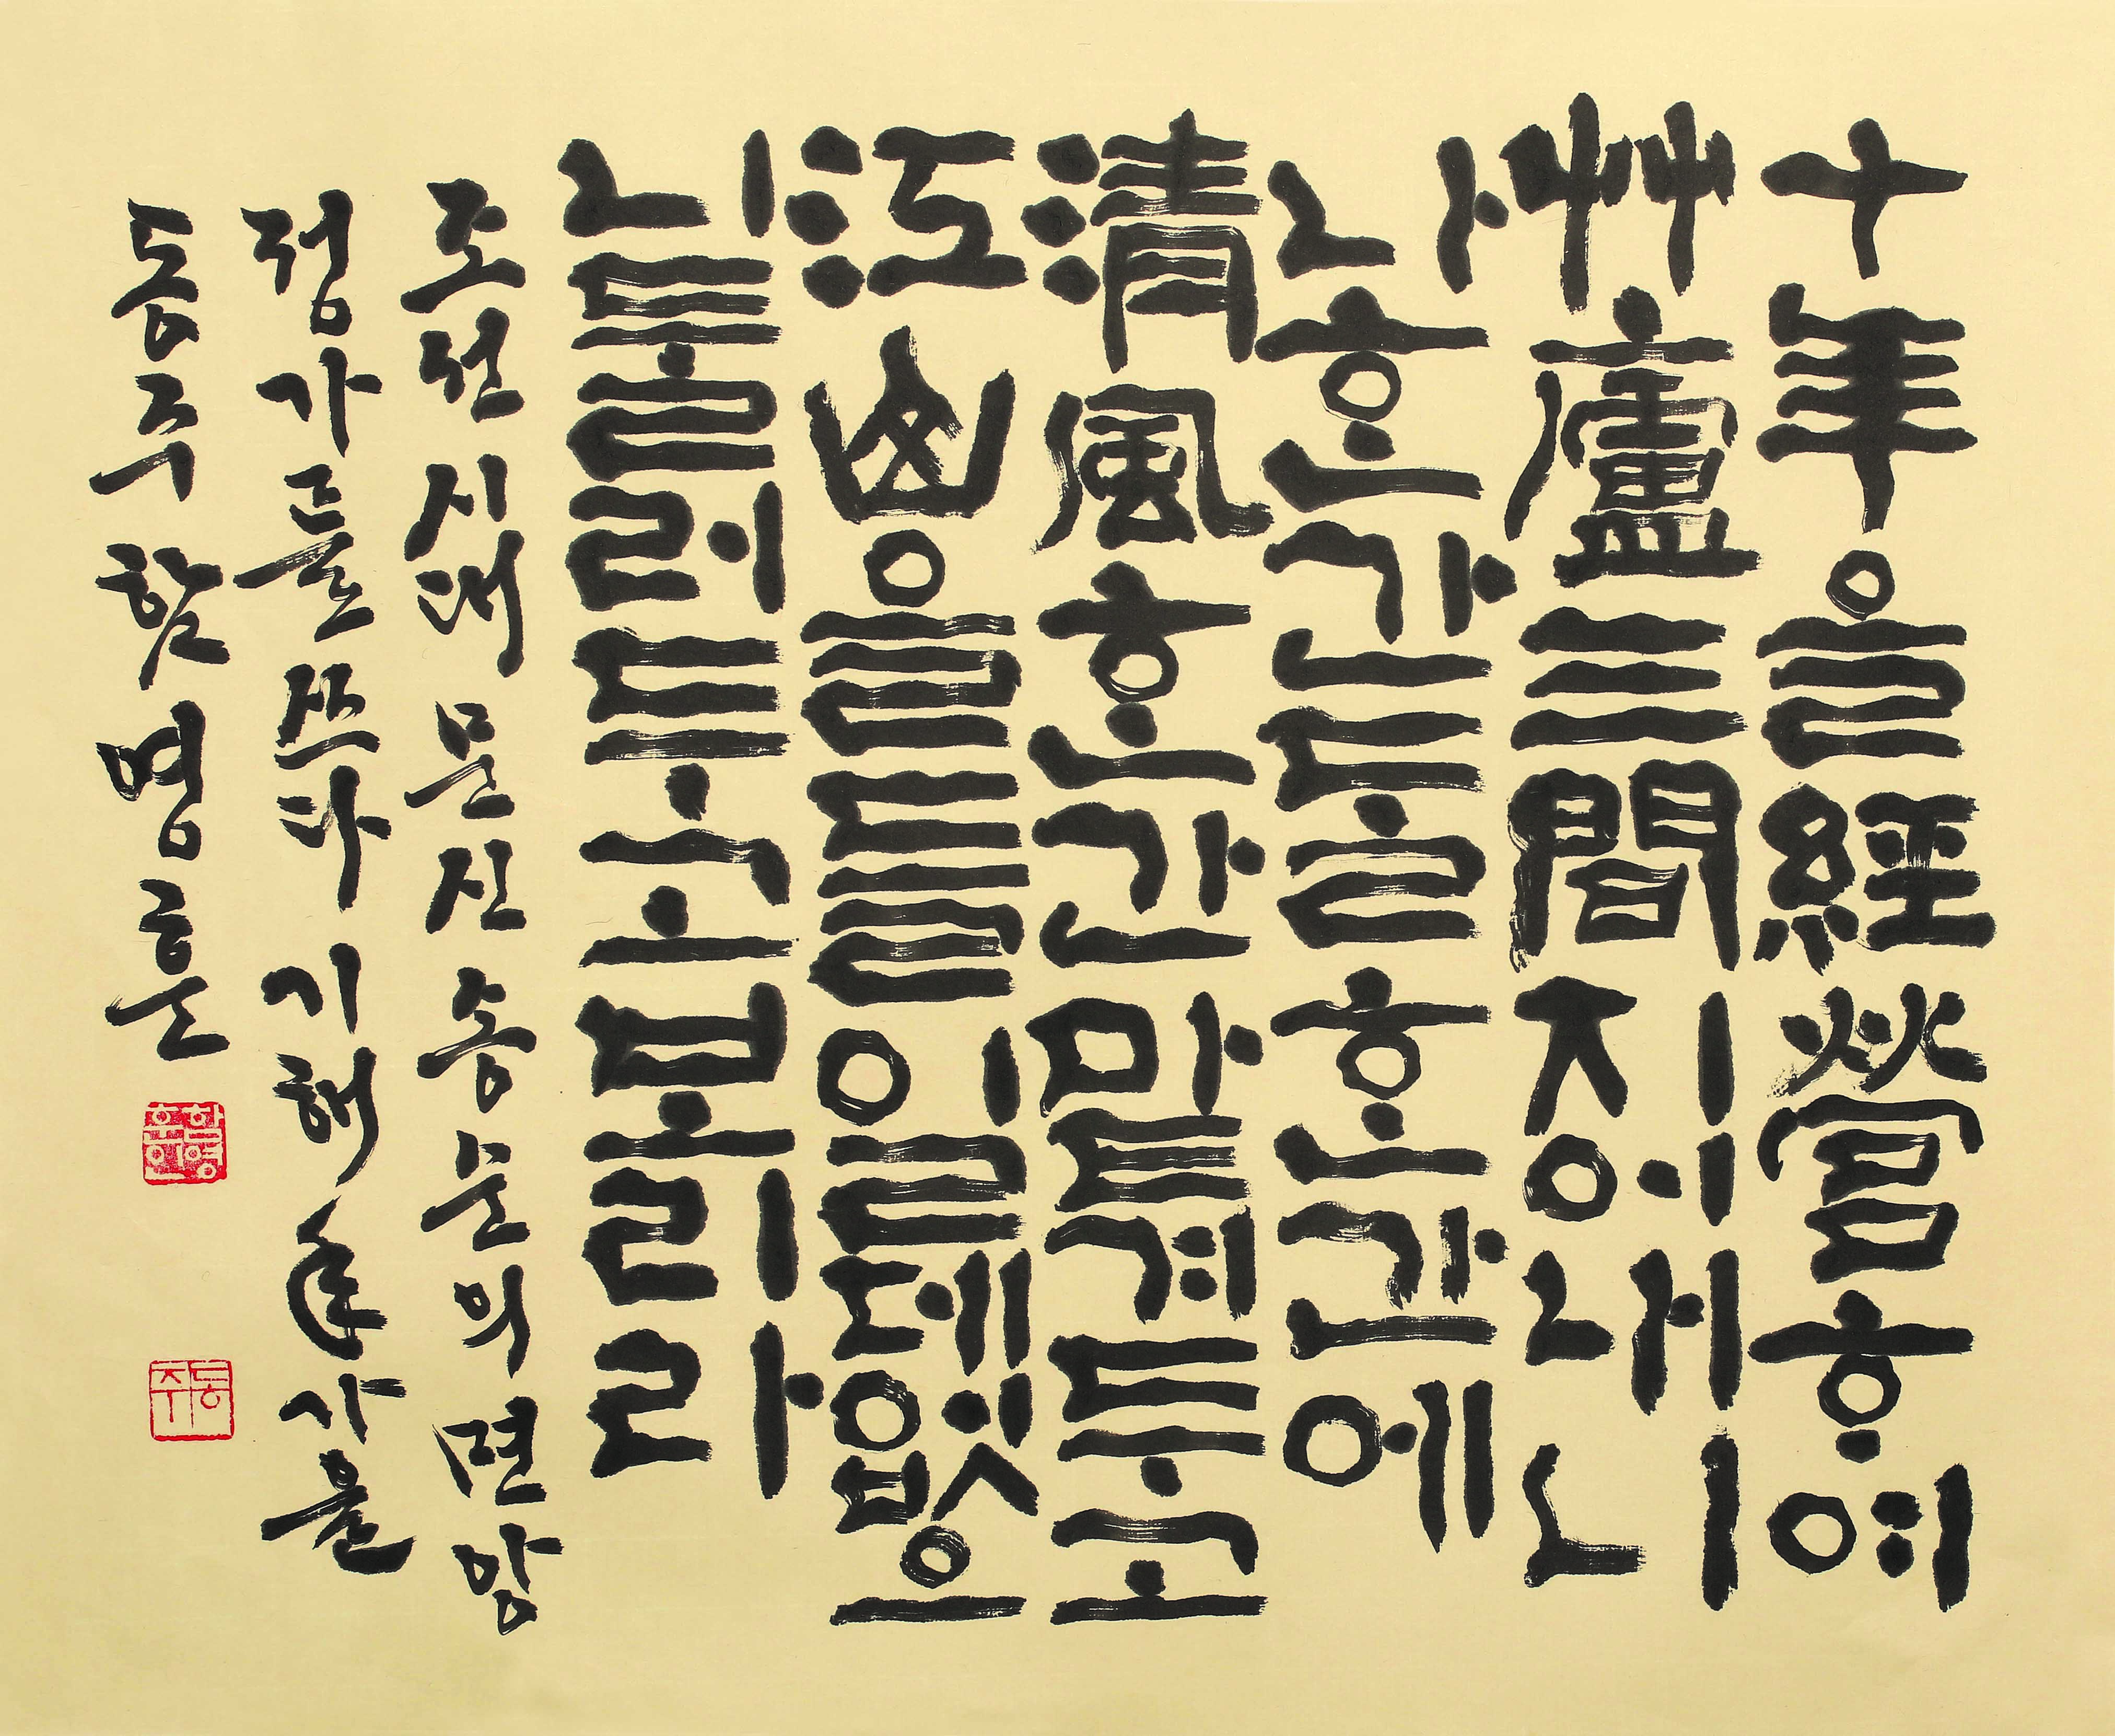 十年을經營ᄒᆞ여
艸廬三間지어내니
나ᄒᆞᆫ간ᄃᆞᆯᄒᆞᆫ간에
淸風ᄒᆞᆫ간맡겨두고
江山을들일데없으
니둘러두고보리라
조선시대 문신 송순의 면앙
정가를 쓰다 기해年 가을
동주 한명훈
한명훈
동주